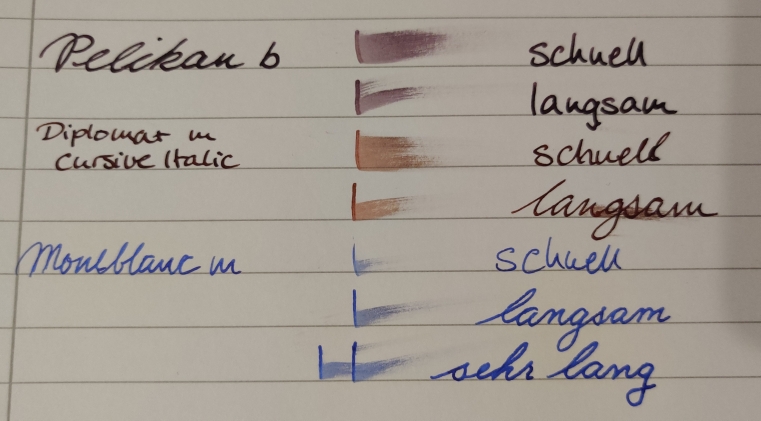 Pelikan b schnell
langsam
Diplomat m
Cursive Italic schnell
langsam
Montblanc m schnell
langsam
sehr lang